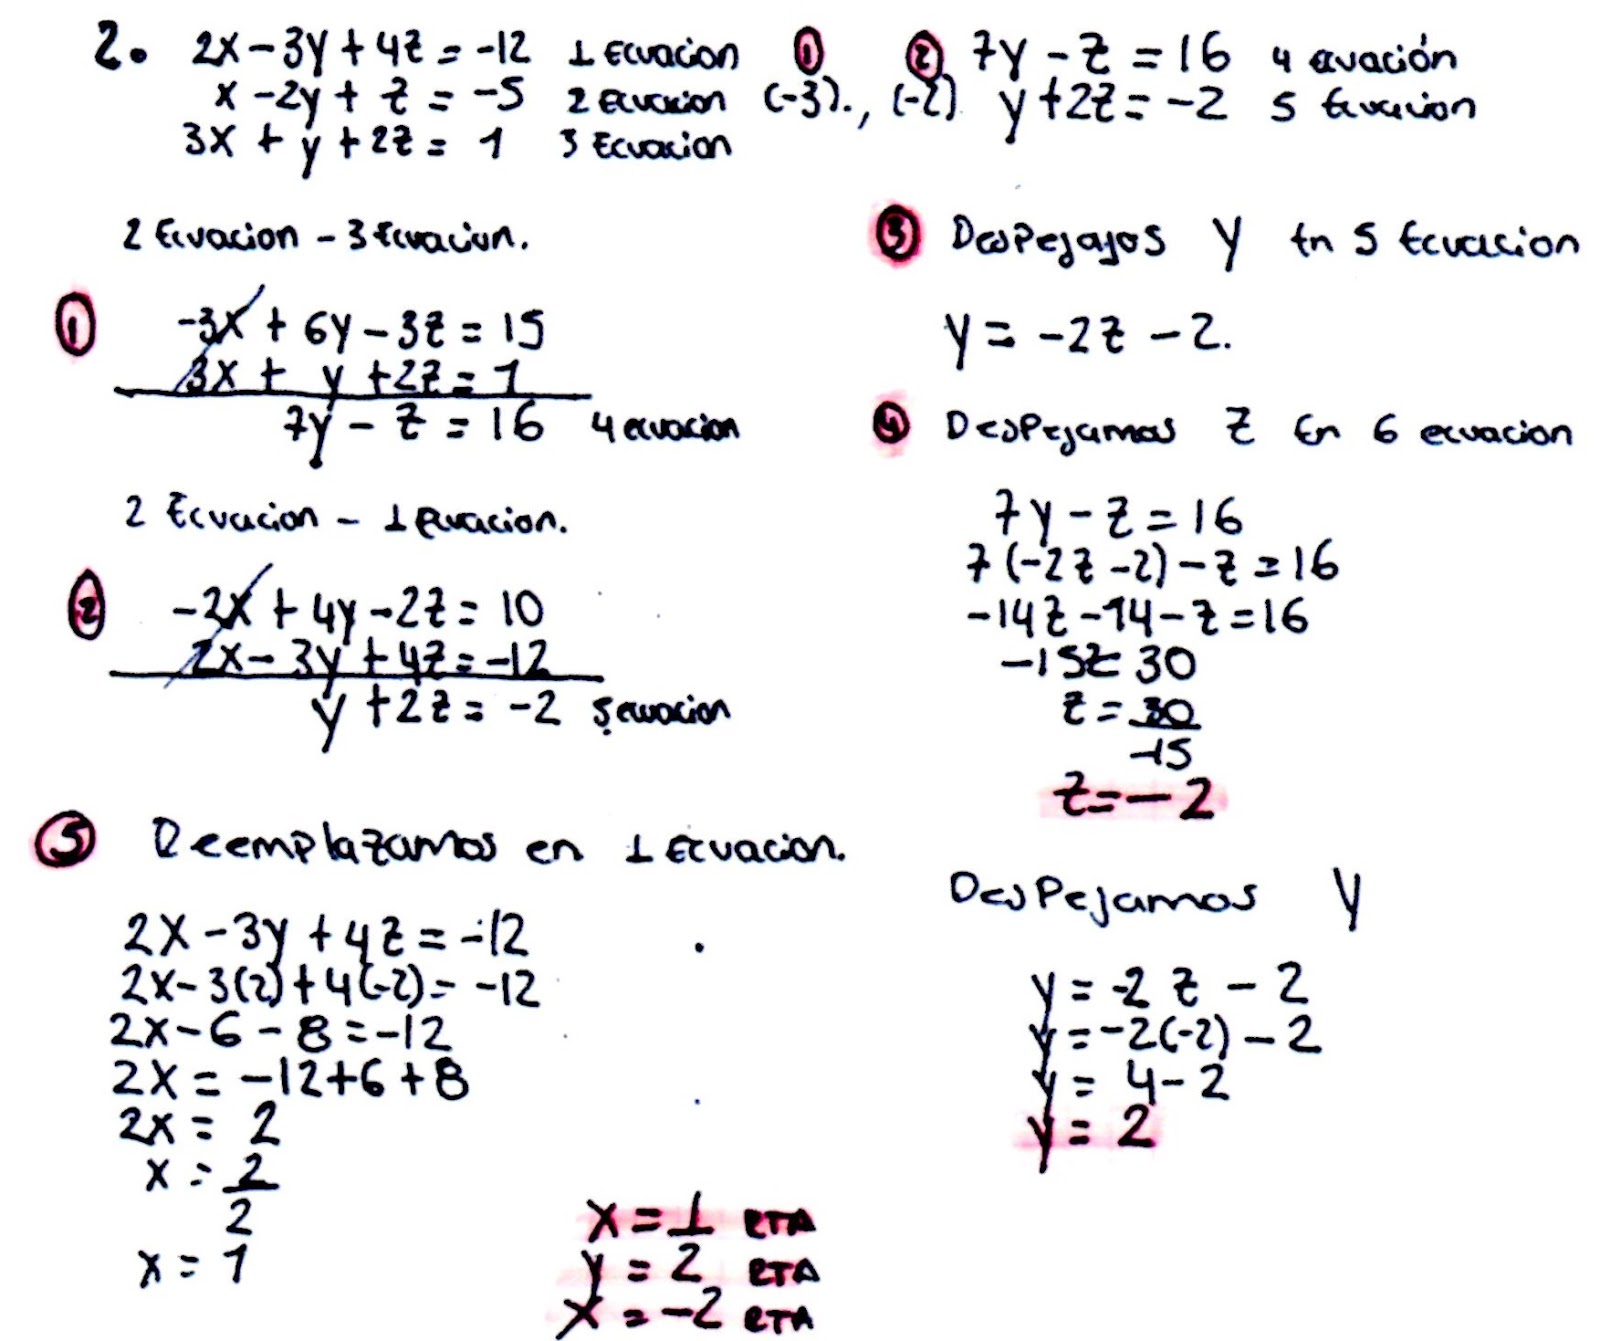 2. 2x - 3y + 4z = -12 1 Ecuacion ①
x - 2y + z = -5 2 Ecuacion (-3)., (-2)
3x + y + 2z = 1 3 Ecuacion
② 7y - z = 16 4 ecuación
y + 2z = -2 5 Ecuacion
2 Ecuacion - 3 Ecuacion.
① -3x + 6y - 3z = 15
3x + y + 2z = 1
7y - z = 16 4 ecuacion
2 Ecuacion - 1 Ecuacion.
② -2x + 4y - 2z = 10
2x - 3y + 4z = -12
y + 2z = -2 5 ecuacion
③ Despejajos y En 5 Ecuacion
y = -2z - 2.
④ Despejamos z En 6 ecuacion
7y - z = 16
7(-2z - 2) - z = 16
-14z - 14 - z = 16
-15z = 30
z = 30
-15
z = -2
Despejamos y
y = -2z - 2
y = -2(-2) - 2
y = 4 - 2
y = 2
⑤ Reemplazamos en 1 Ecuacion.
2x - 3y + 4z = -12
2x - 3(2) + 4(-2) = -12
2x - 6 - 8 = -12
2x = -12 + 6 + 8
2x = 2
x = 2
2
x = 1
x = 1 RTA
y = 2 RTA
x = -2 RTA